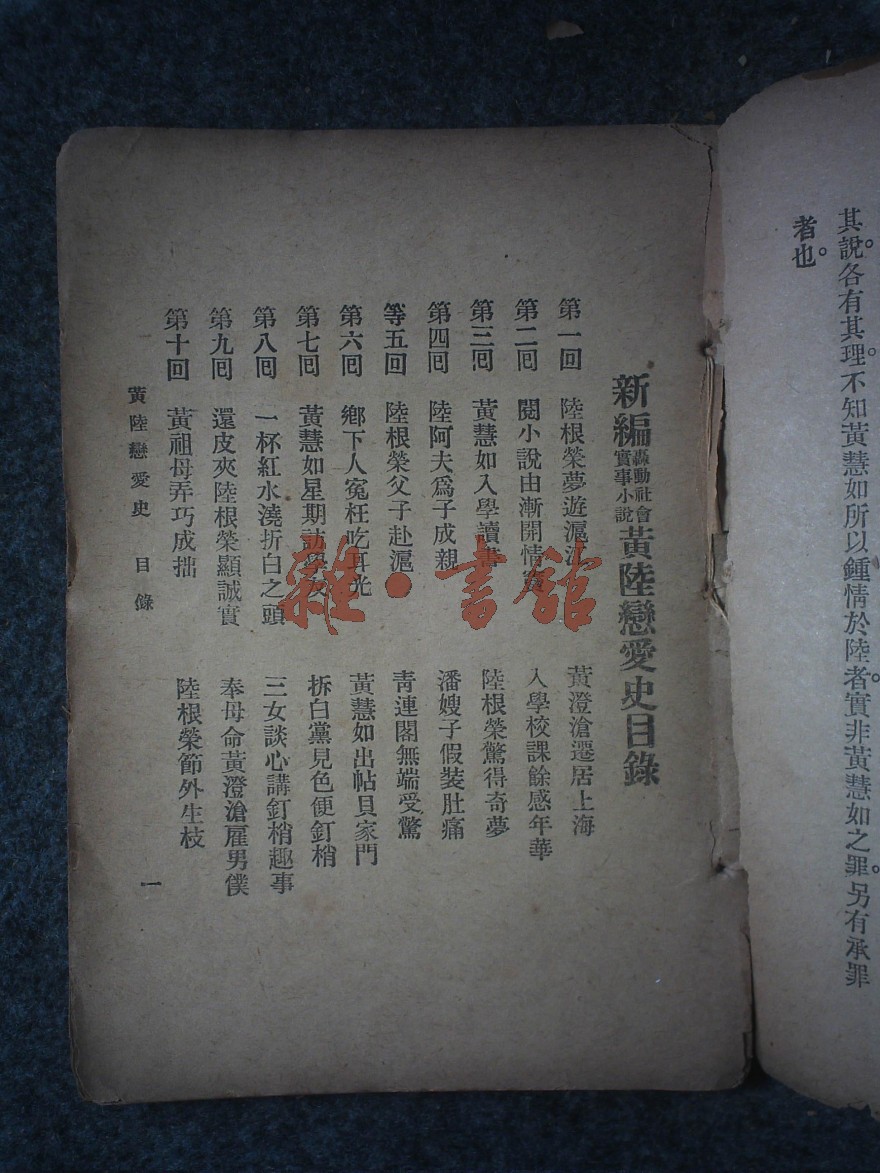 其說。各有其理。不知黃慧如所以鍾情於陸者。實非黃慧如之罪。另有承罪
者也。
新編轟動社會實事小說黃陸戀愛史目錄
第一回 陸根榮夢遊滬 黃澄滄遷居上海
第二囘 閱小說由漸開情竇 入學校課餘感年華
第三囘 黃慧如入學讀書 陸根榮驚得奇夢
第四囘 陸阿夫爲子成親 潘嫂子假裝肚痛
等五回 陸根榮父子赴滬 靑連閣無端受驚
第六囘 鄉下人寃枉吃耳光 黃慧如出帖貝家門
第七囘 黃慧如星期訪學友 拆白黨見色便釘梢
第八囘 一杯紅水澆折白之頭 三女談心講釘梢趣事
第九囘 還皮夾陸根榮顯誠實 奉母命黃澄滄雇男僕
第十回 黃祖母弄巧成拙 陸根榮節外生枝
黃陸戀愛史 目錄 一
雜·書館